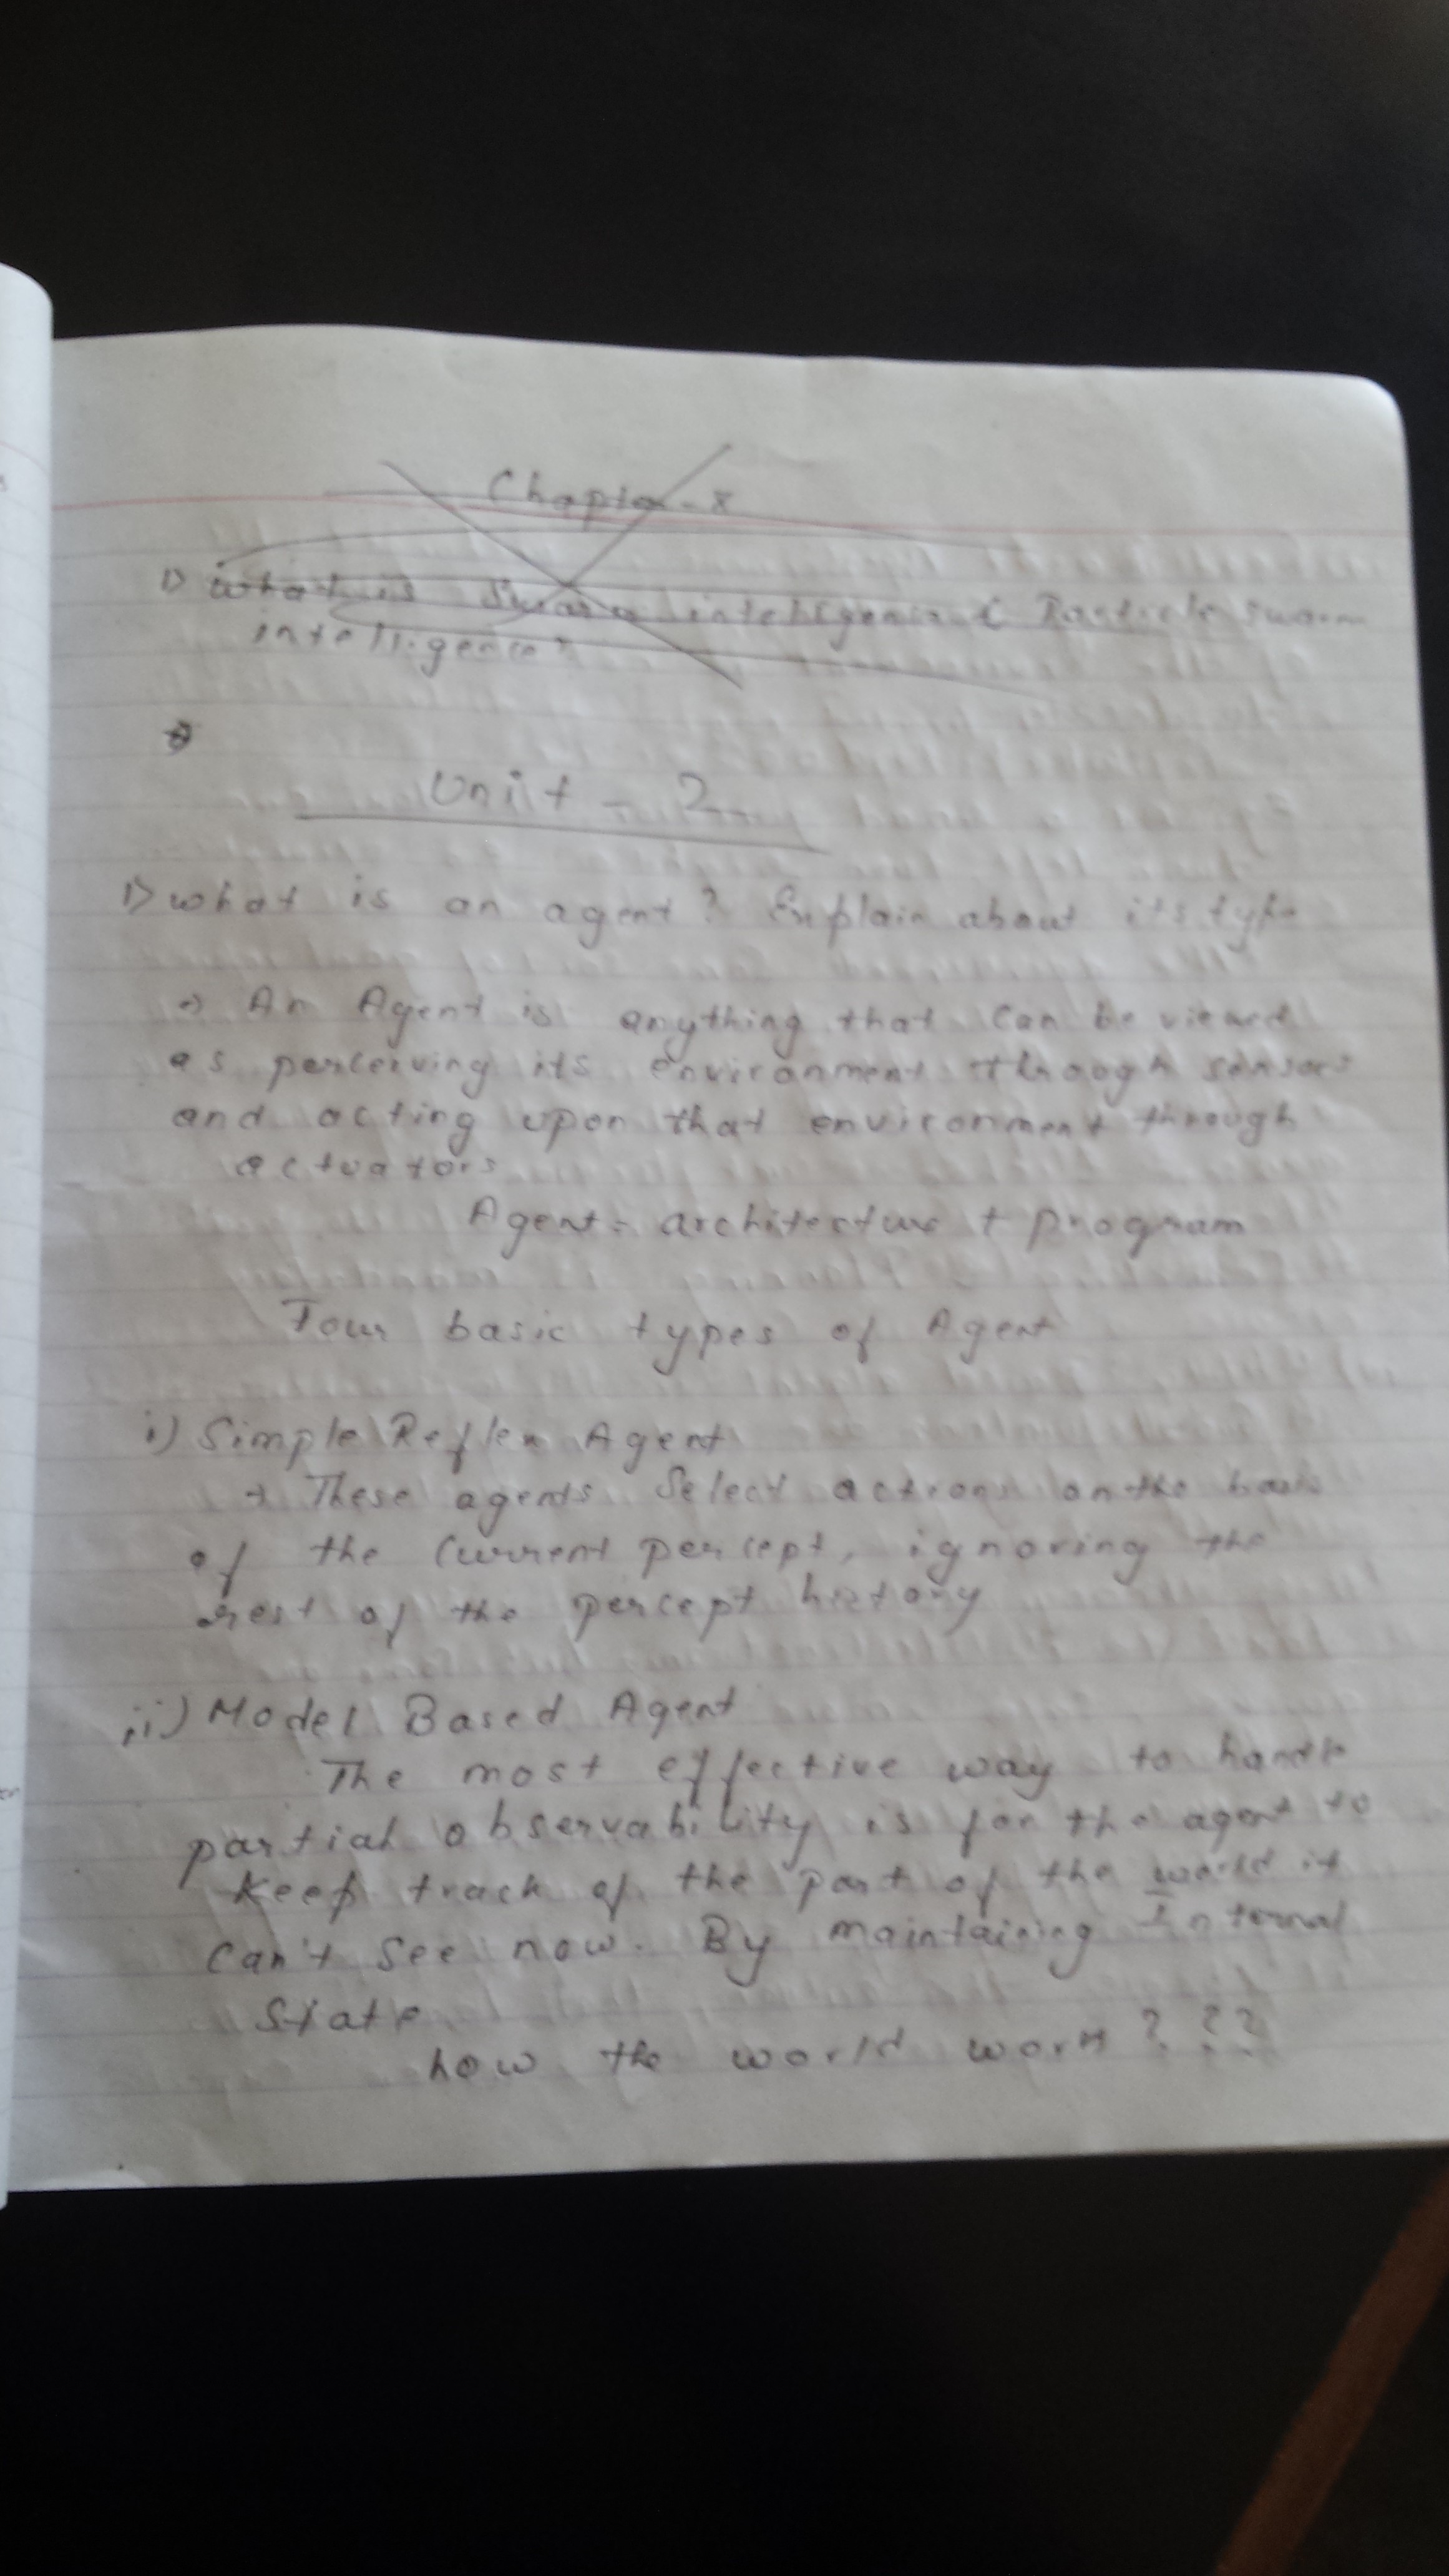 Chapter-8
1) What is Swarm intelligence & Particle swarm
intelligence?
Unit - 2
1) what is an agent? Explain about its type
→ An Agent is anything that can be viewed
as perceiving its environment through sensors
and acting upon that environment through
actuators
Agent = architecture + program
Four basic types of Agent
i) Simple Reflex Agent
→ These agents select actions on the basis
of the current percept, ignoring the
rest of the percept history
ii) Model Based Agent
The most effective way to handle
partial observability is for the agent to
Keep track of the part of the world it
can't see now. By maintaining Internal
State
how the world work ???